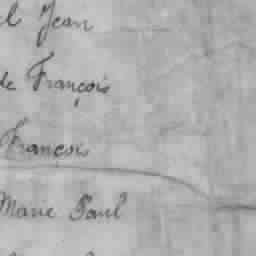 Jean
de François
François
Marie Paul